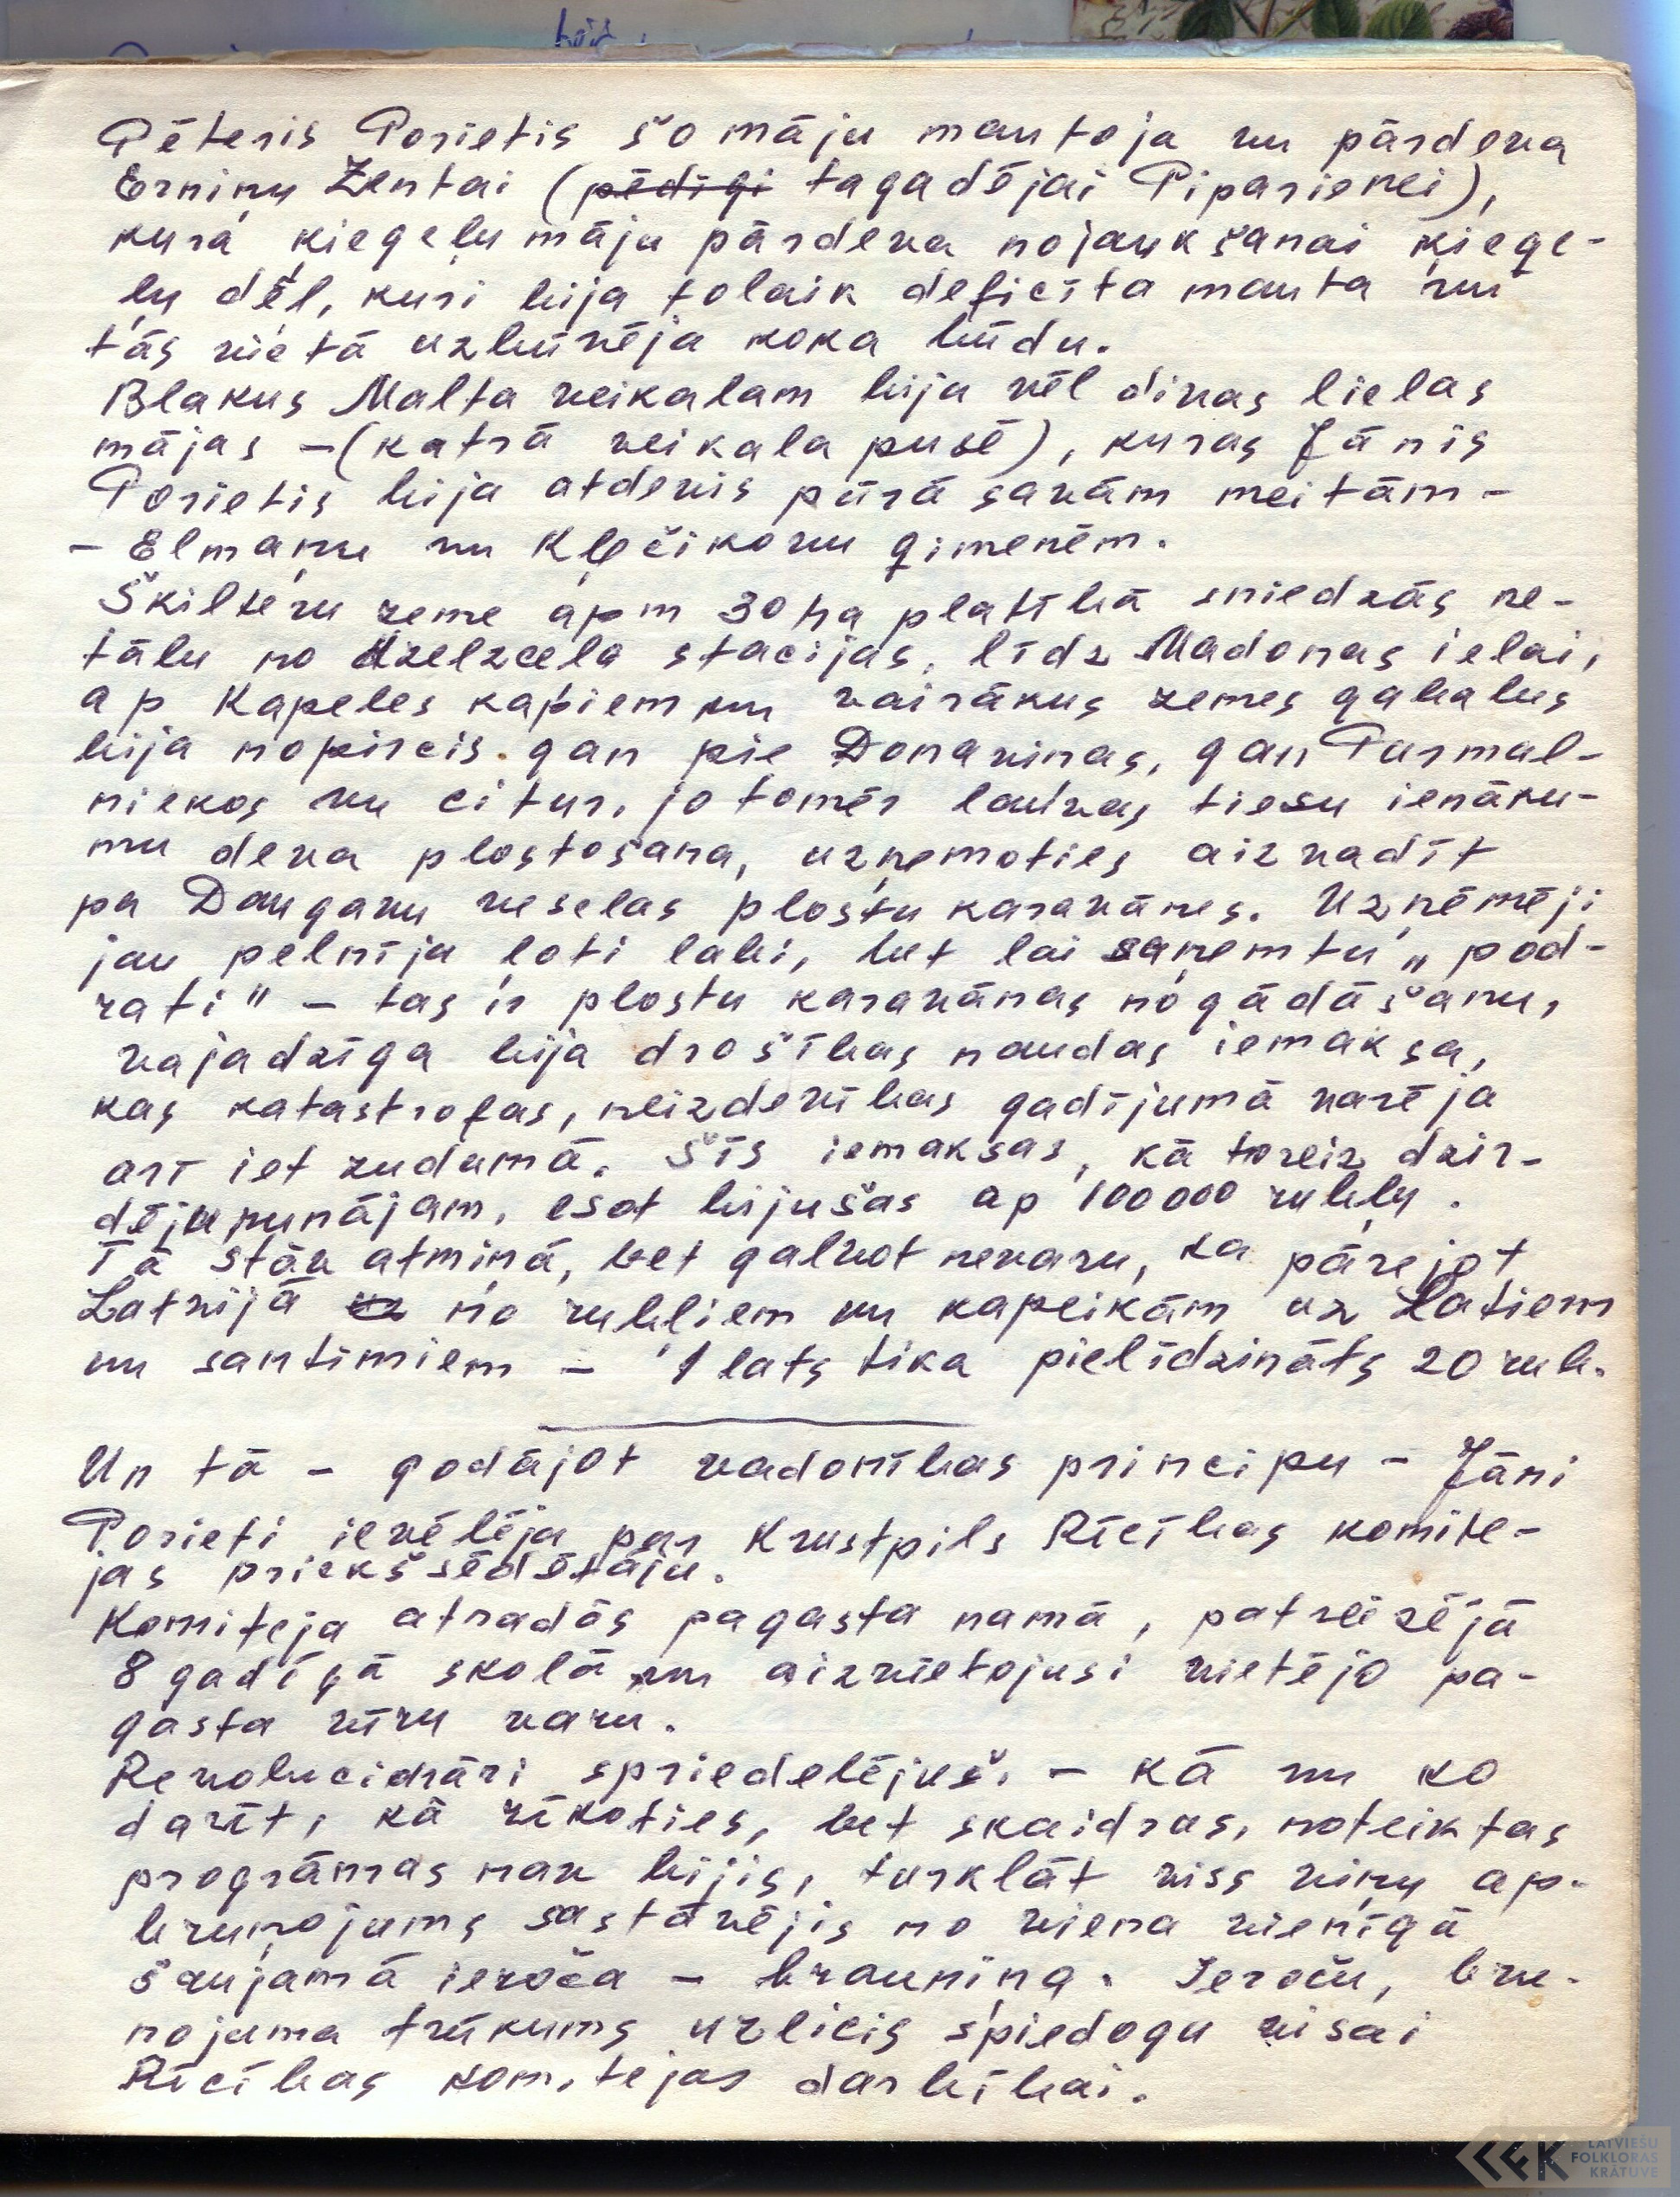 Pēteris Porietis šo māju mantoja un pārdeva
Erniņu Zentai (pēdigi tagadējai Piparienei),
kura ķieģeļu māju pārdeva nojaukšanai ķieģe-
ļu dēļ, kuri bija tolaik deficīta manta un
tās vietā uzbūvēja koka būdu.
Blakus Malta veikalam bija vēl divas lielas
mājas – (katrā veikala pusē), kuras Jānis
Porietis bija atdevis pūrā savām meitām –
– Elmaņu un Kļečikovu ģimenēm.
Šķilteru zeme apm 30 ha platībā sniedzās ne-
tālu no dzelzceļa stacijas, līdz Madonas ielai,
ap Kapeles kapiem un vairākus zemes gabalus
bija nopircis gan pie Donaviņas, gan Purmal-
niekos un citur, jo tomēr lauvas tiesu ienāku-
mu deva plostošana, uzņemoties aizvadīt
pa Daugavu veselas plostu karavānes. Uzņēmēji
jau pelnīja ļoti labi, bet lai saņemtu „pod-
rati" – tas ir plostu karavānas nogādāšanu,
vajadzīga bija drošības naudas iemaksa,
kas katastrofas, neizdevības gadījumā varēja
arī iet zudumā. Šīs iemaksas, kā toreiz dzir-
dēju runājam, esot bijušas ap 100000 rubļu.
Tā stāv atmiņā, bet galvot nevaru, ka pārejot
Latvijā uz no rubļiem un kapeikām uz Latiem
un santīmiem – 1 lats tika pielīdzināts 20 rub.
Un tā – godājot vadonības principu – Jāni
Porieti ievēlēja par Krustpils Rīcības komite-
jas priekšsēdētāju.
Komiteja atradās pagasta namā, patreizējā
8 gadīgā skolā un aizvietojusi vietējo pa-
gasta vīru varu.
Revolucionāri spriedelējuši – kā un ko
darīt, kā rīkoties, bet skaidras, noteiktas
progrāmas nav bijis, turklāt viss viņu ap-
bruņojums sastāvējis no viena vienīgā
šaujamā ieroča – brauniņa. Ieroču, bru-
ņojuma trūkums uzlicis spiedogu visai
Rīcības komitejas darbībai.
LATVIEŠU
FOLKLORAS
KRĀTUVE